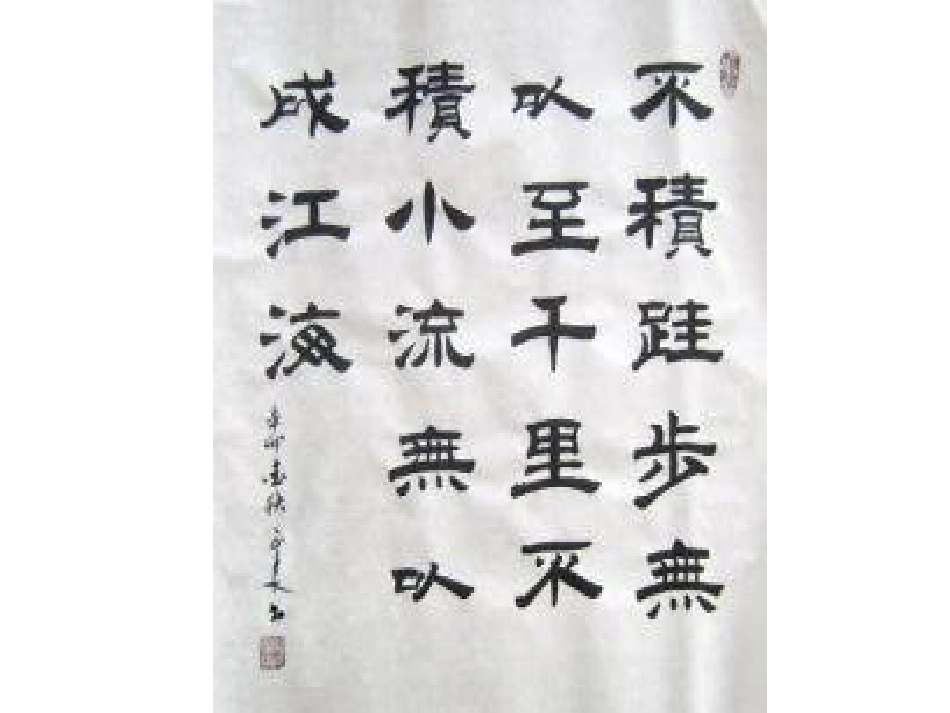 不積跬步無
以至千里不
積小流無以
成江海
辛卯